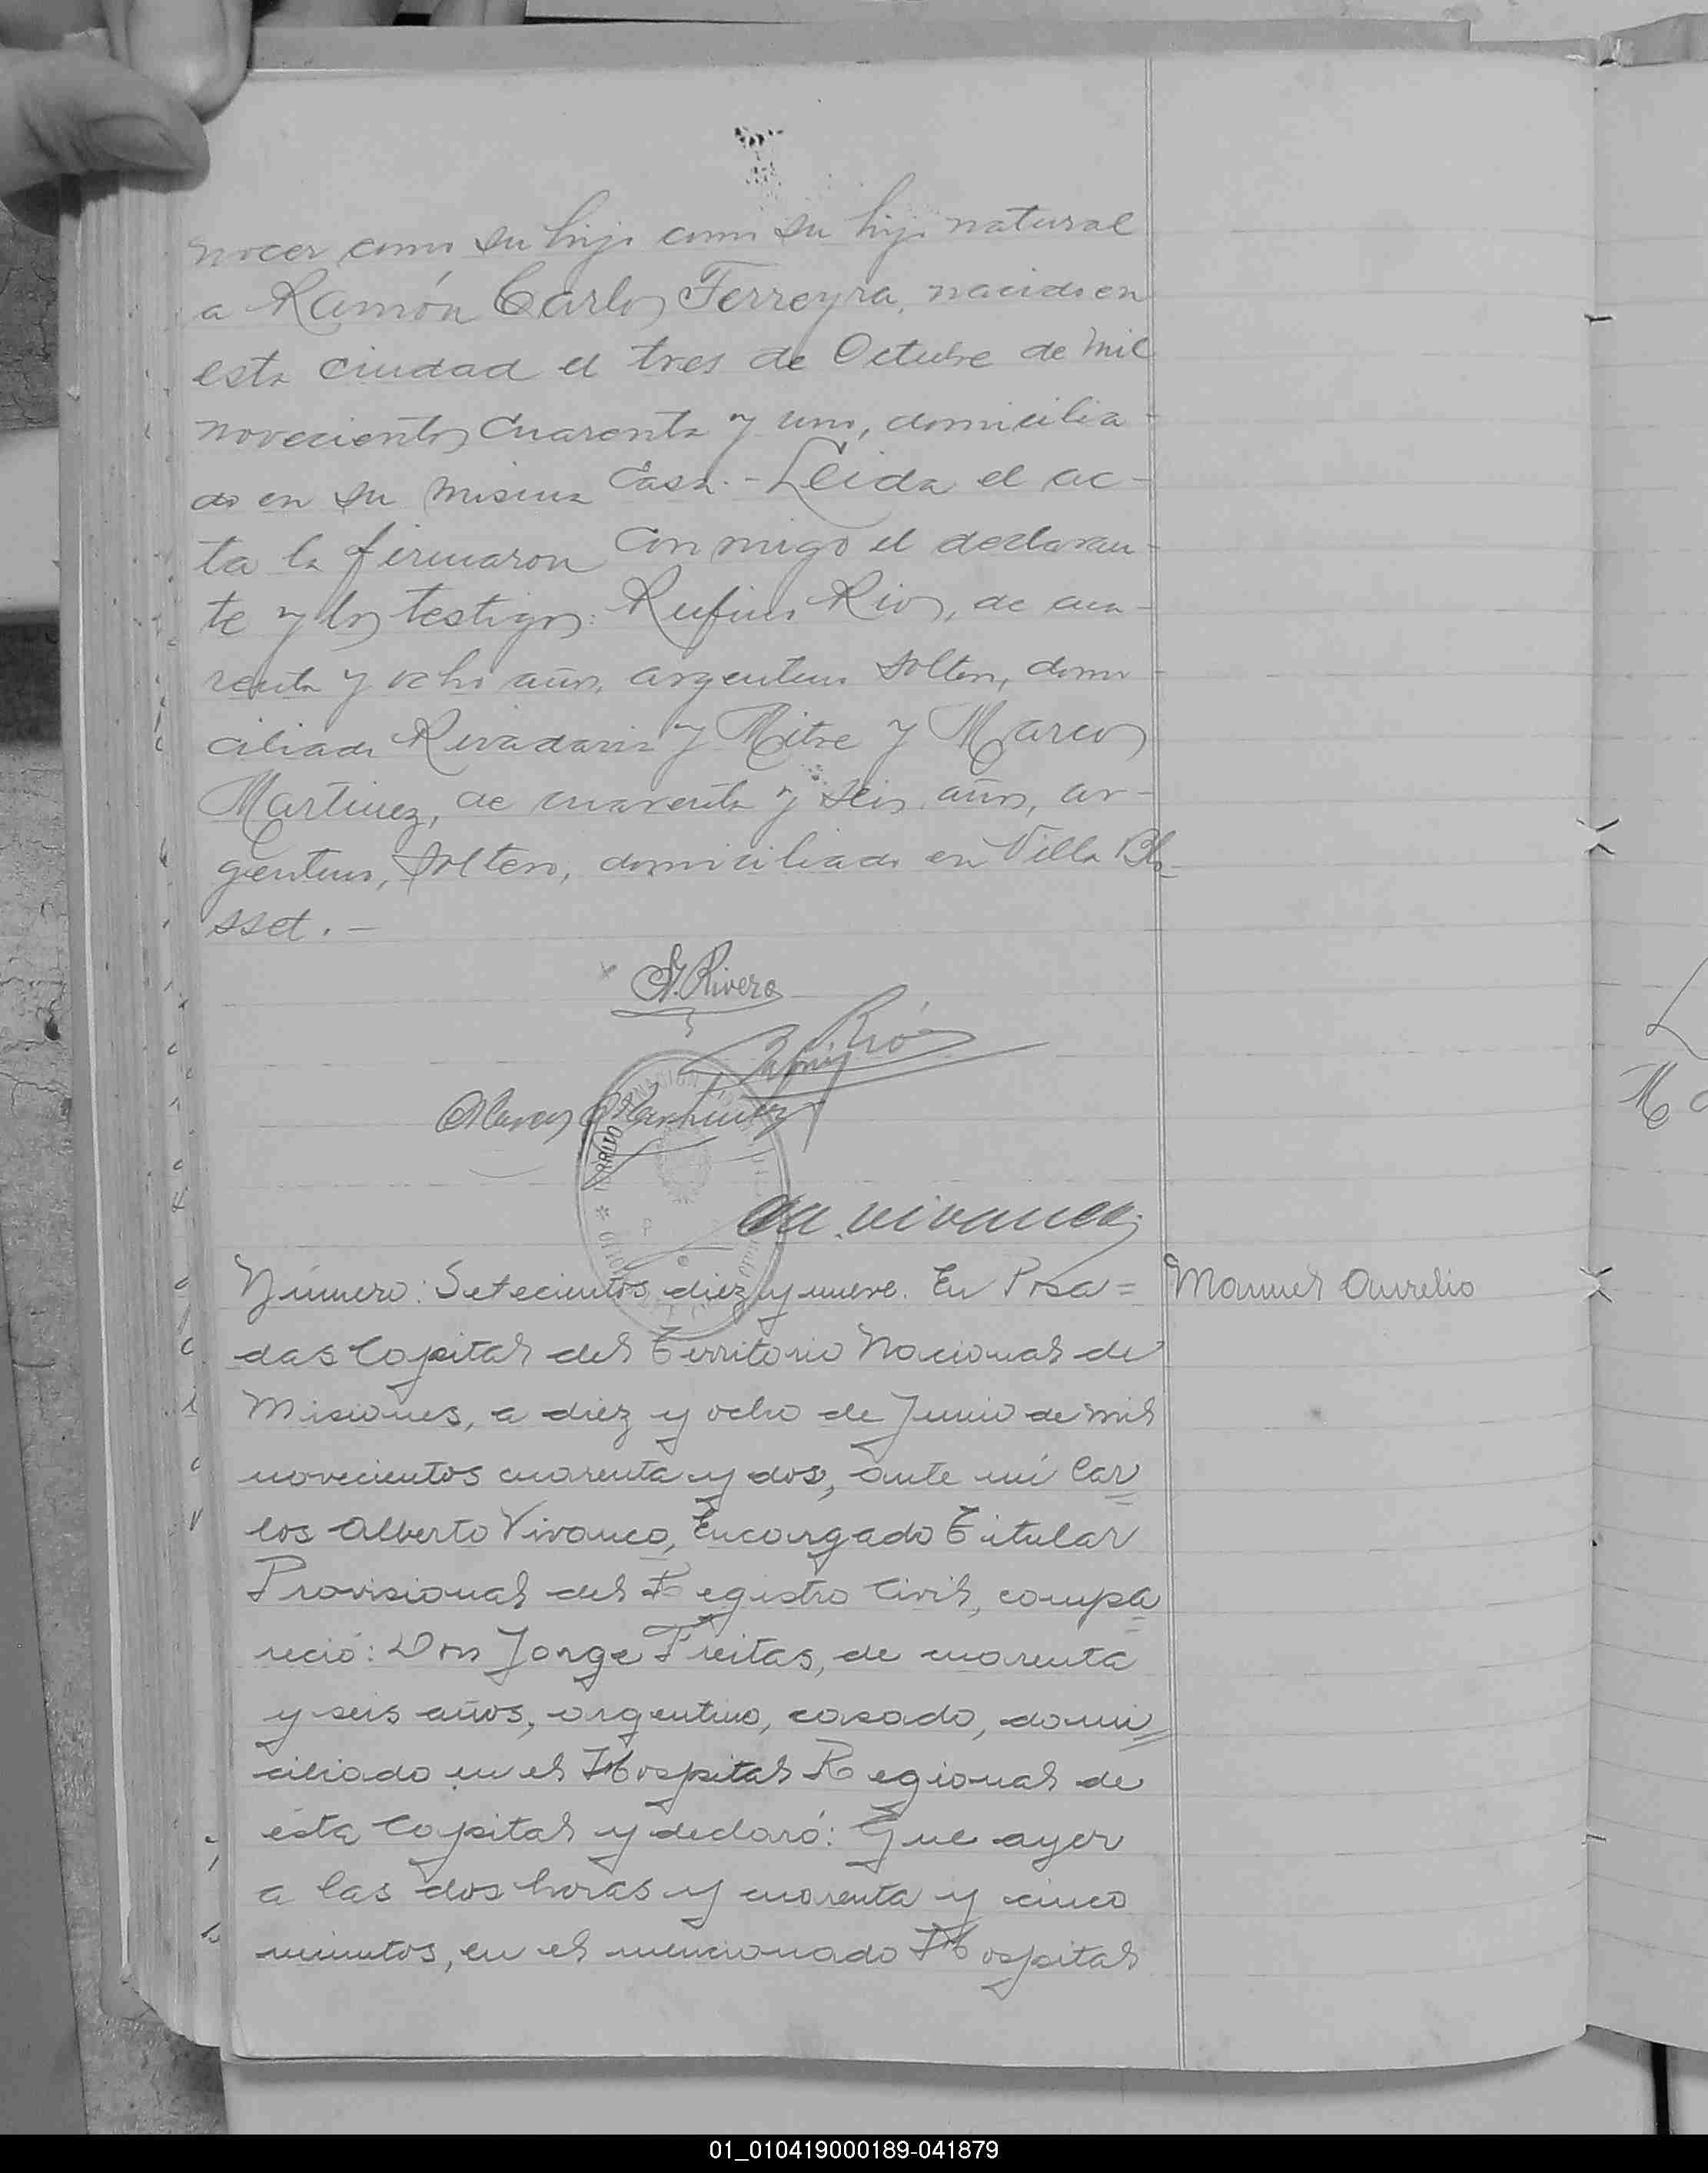 nocer como su hijo como su hijo natural
a Ramón Carlos Ferreyra, nacido en
esta ciudad el tres de Octubre de mil
novecientos cuarenta y uno, domicilia-
do en su misma casa.- Leida el ac-
ta la firmaron conmigo el declaran-
te y los testigos: Rufino Rios, de cua-
renta y ocho años, argentino soltero, domi-
ciliado Rivadavia y Mitre y Marcos
Martinez, de cuarenta y seis años, ar-
gentino, soltero, domiciliado en Villa Blo-
sset.-
Rivero
Rió
Marcos Martinez
Vivanco
Número: Setecientos diez y nueve. En Posa=
Manuel Aurelio
das Capital del Territorio Nacional de
Misiones, a diez y ocho de Junio de mil
novecientos cuarenta y dos, ante mí Car
los Alberto Vivanco, Encargado Titular
Provisional del Registro Civil, compa
reció: Don Jorge Freitas, de cuarenta
y seis años, argentino, casado, domi
ciliado en el Hospital Regional de
ésta Capital y declaró: Que ayer
a las dos horas y cuarenta y cinco
minutos, en el mencionado Hospital
01_010419000189-041879